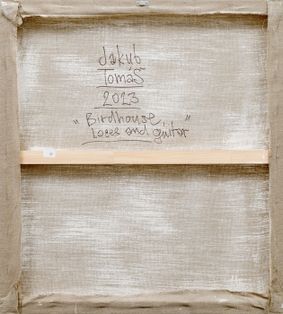 Jakub
Tomáš
2023
"Birdhouse,
Loees and guitar"